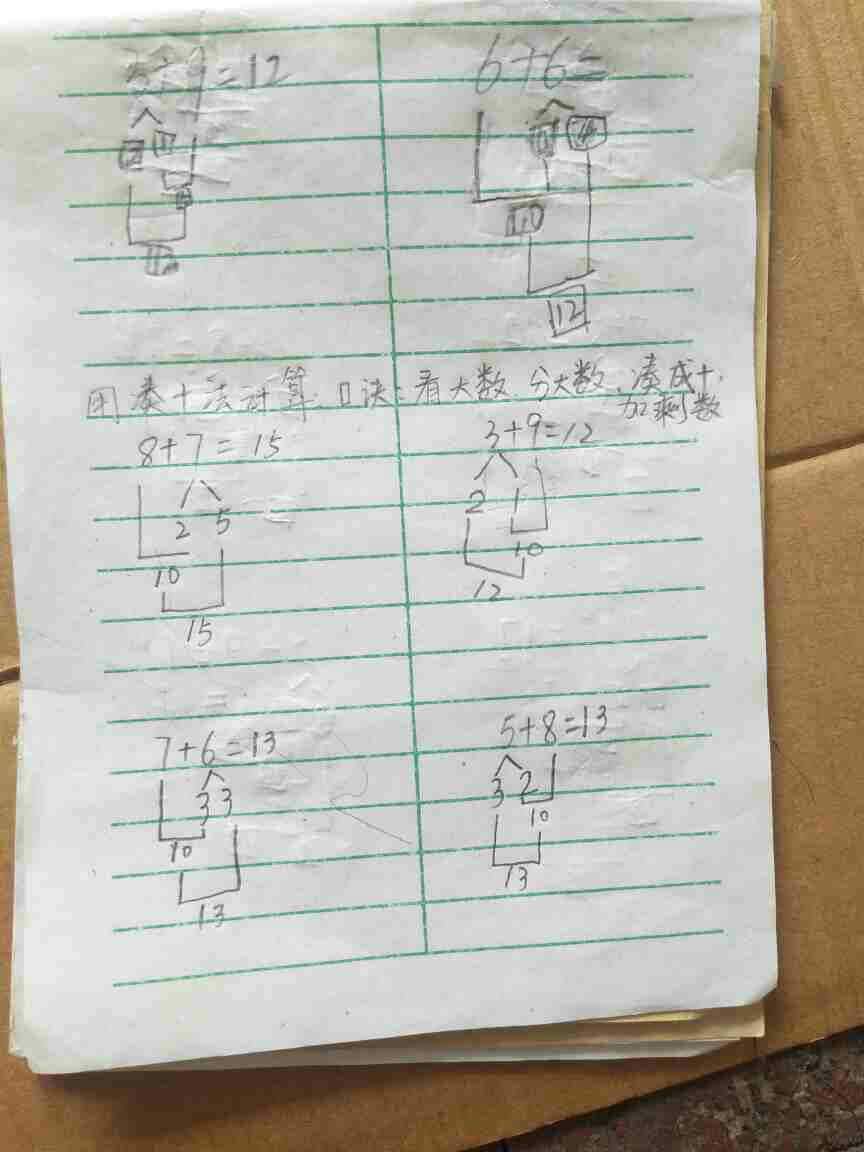 +9=12
6+6=
10
12
用凑十法计算.口诀:看大数.分大数、凑成十,
加剩数
8+7=15
3+9=12
2 5
2 1
10
10
15
12
7+6=13
5+8=13
3 3
3 2
10
10
13
13